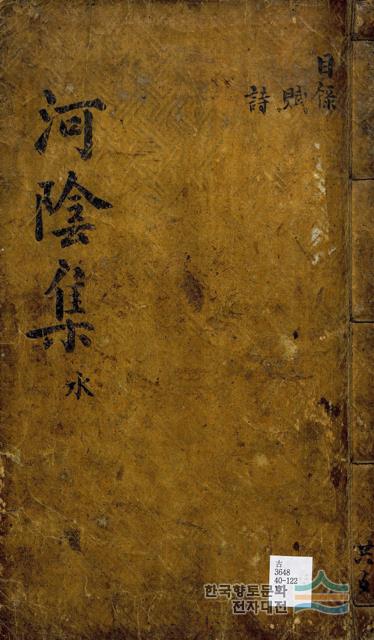 目錄
賦
詩
河陰集 水
共
古
3648
40-122
한국향토문화
전자대전